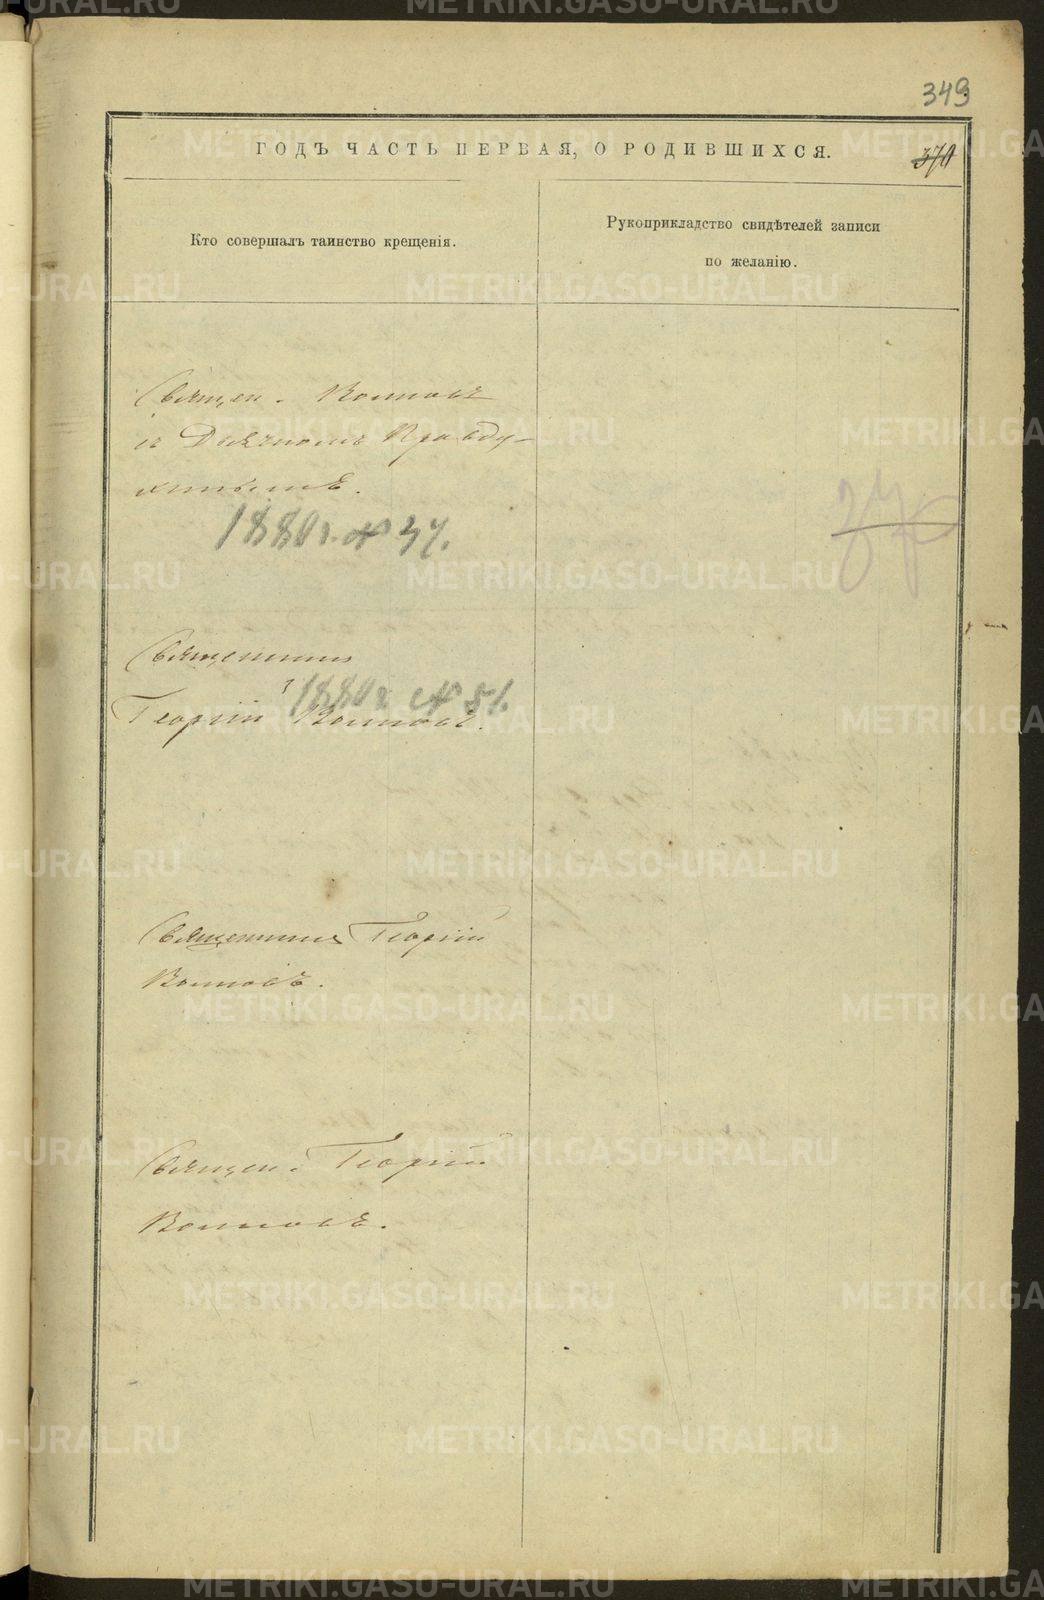 349
ГОДЪ ЧАСТЬ ПЕРВАЯ, О РОДИВШИХСЯ.
370
Кто совершалъ таинство крещенія.
Рукоприкладство свидѣтелей записи
по желанію.
Священ.
съ Дьячкомъ
1880 г. № 37.
370
Священникъ
1880 г. № 51.
Георгій
Священникъ Георгій
Священ. Георгій
METRIKI.GASO-URAL.RU